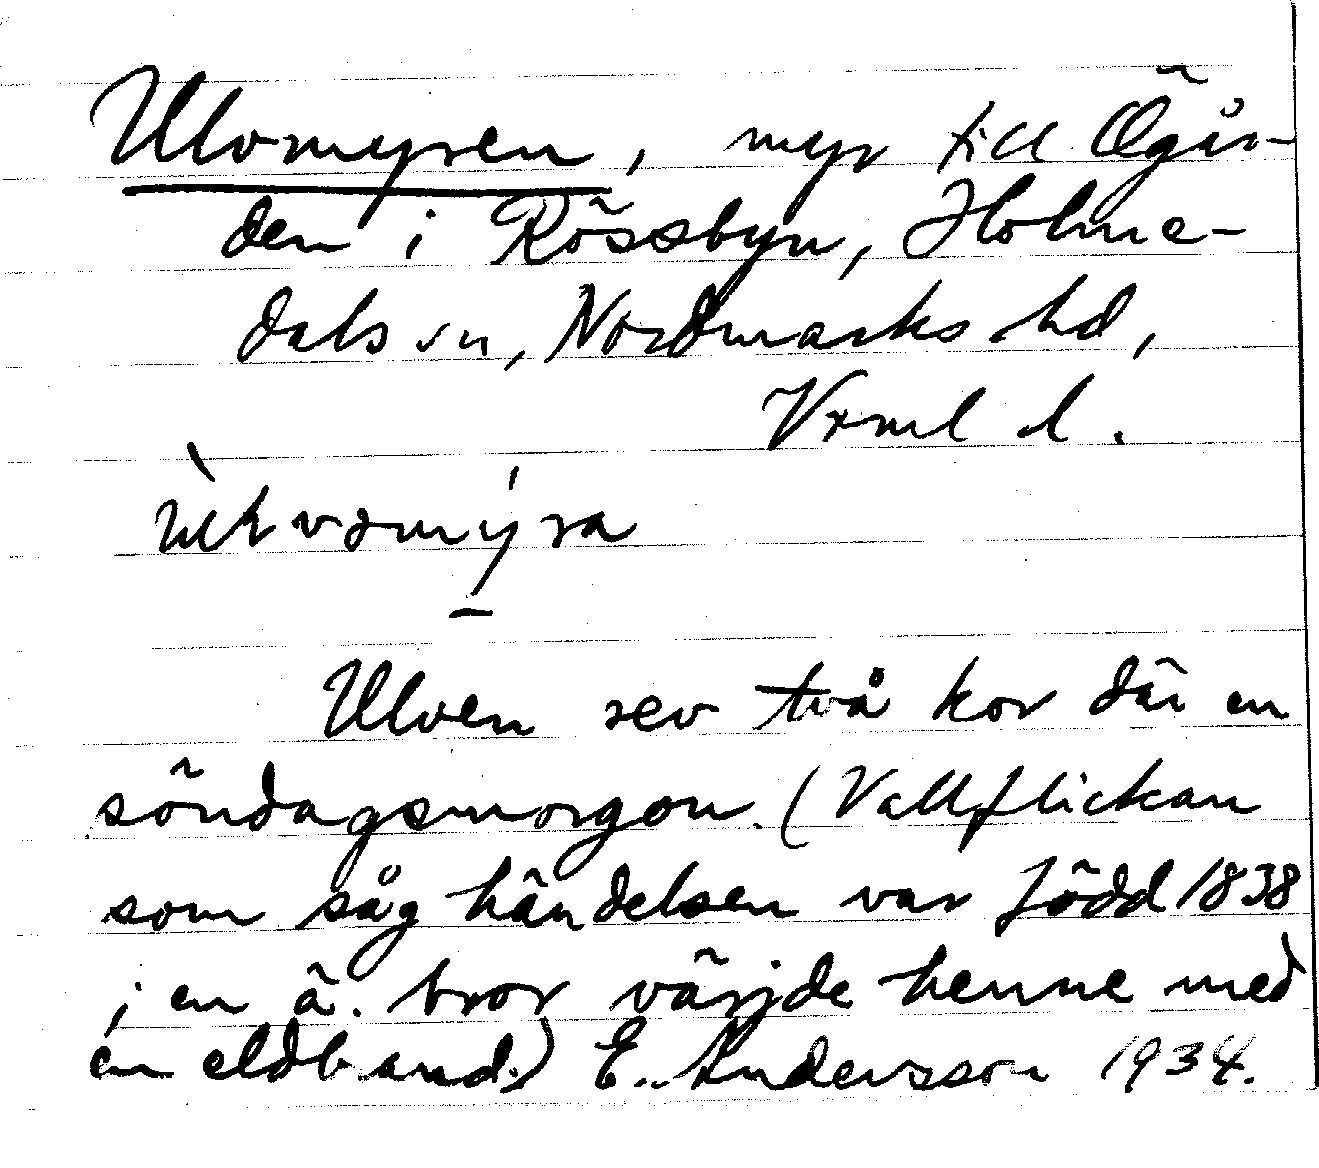 Ulvmyren, myr till Ögår-
den i Rössbyn, Holme-
dals sn, Nordmarks hd,
Vrml l.
Ulven rev två kor där en
söndagsmorgon. (Vallflickan
som såg händelsen var född 1838
; en ä. bror värjde henne med
en eldbrand.) E. Andersson 1934.